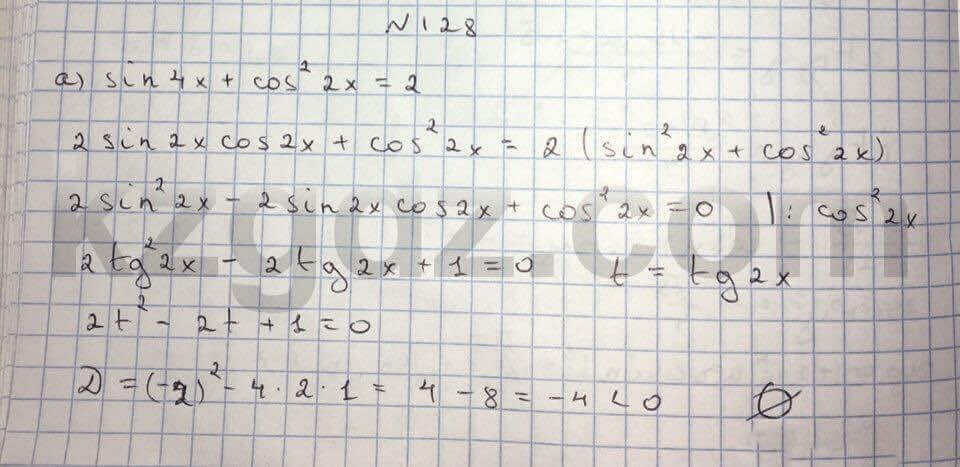 N128
а) sin 4x + cos² 2x = 2
2 sin 2x cos 2x + cos² 2x = 2 (sin² 2x + cos² 2x)
2 sin² 2x - 2 sin 2x cos 2x + cos² 2x = 0 |: cos² 2x
2 tg² 2x - 2 tg 2x + 1 = 0 t = tg 2x
2t² - 2t + 1 = 0
D = (-2)² - 4 · 2 · 1 = 4 - 8 = -4 < 0 ∅
kzgdz.com